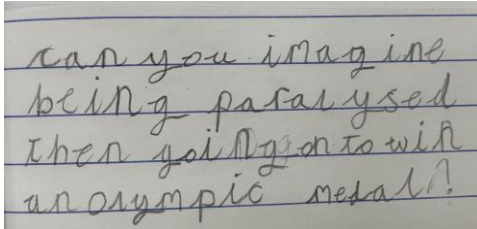 can you imagine
being paralysed
then going on to win
an olympic medal?